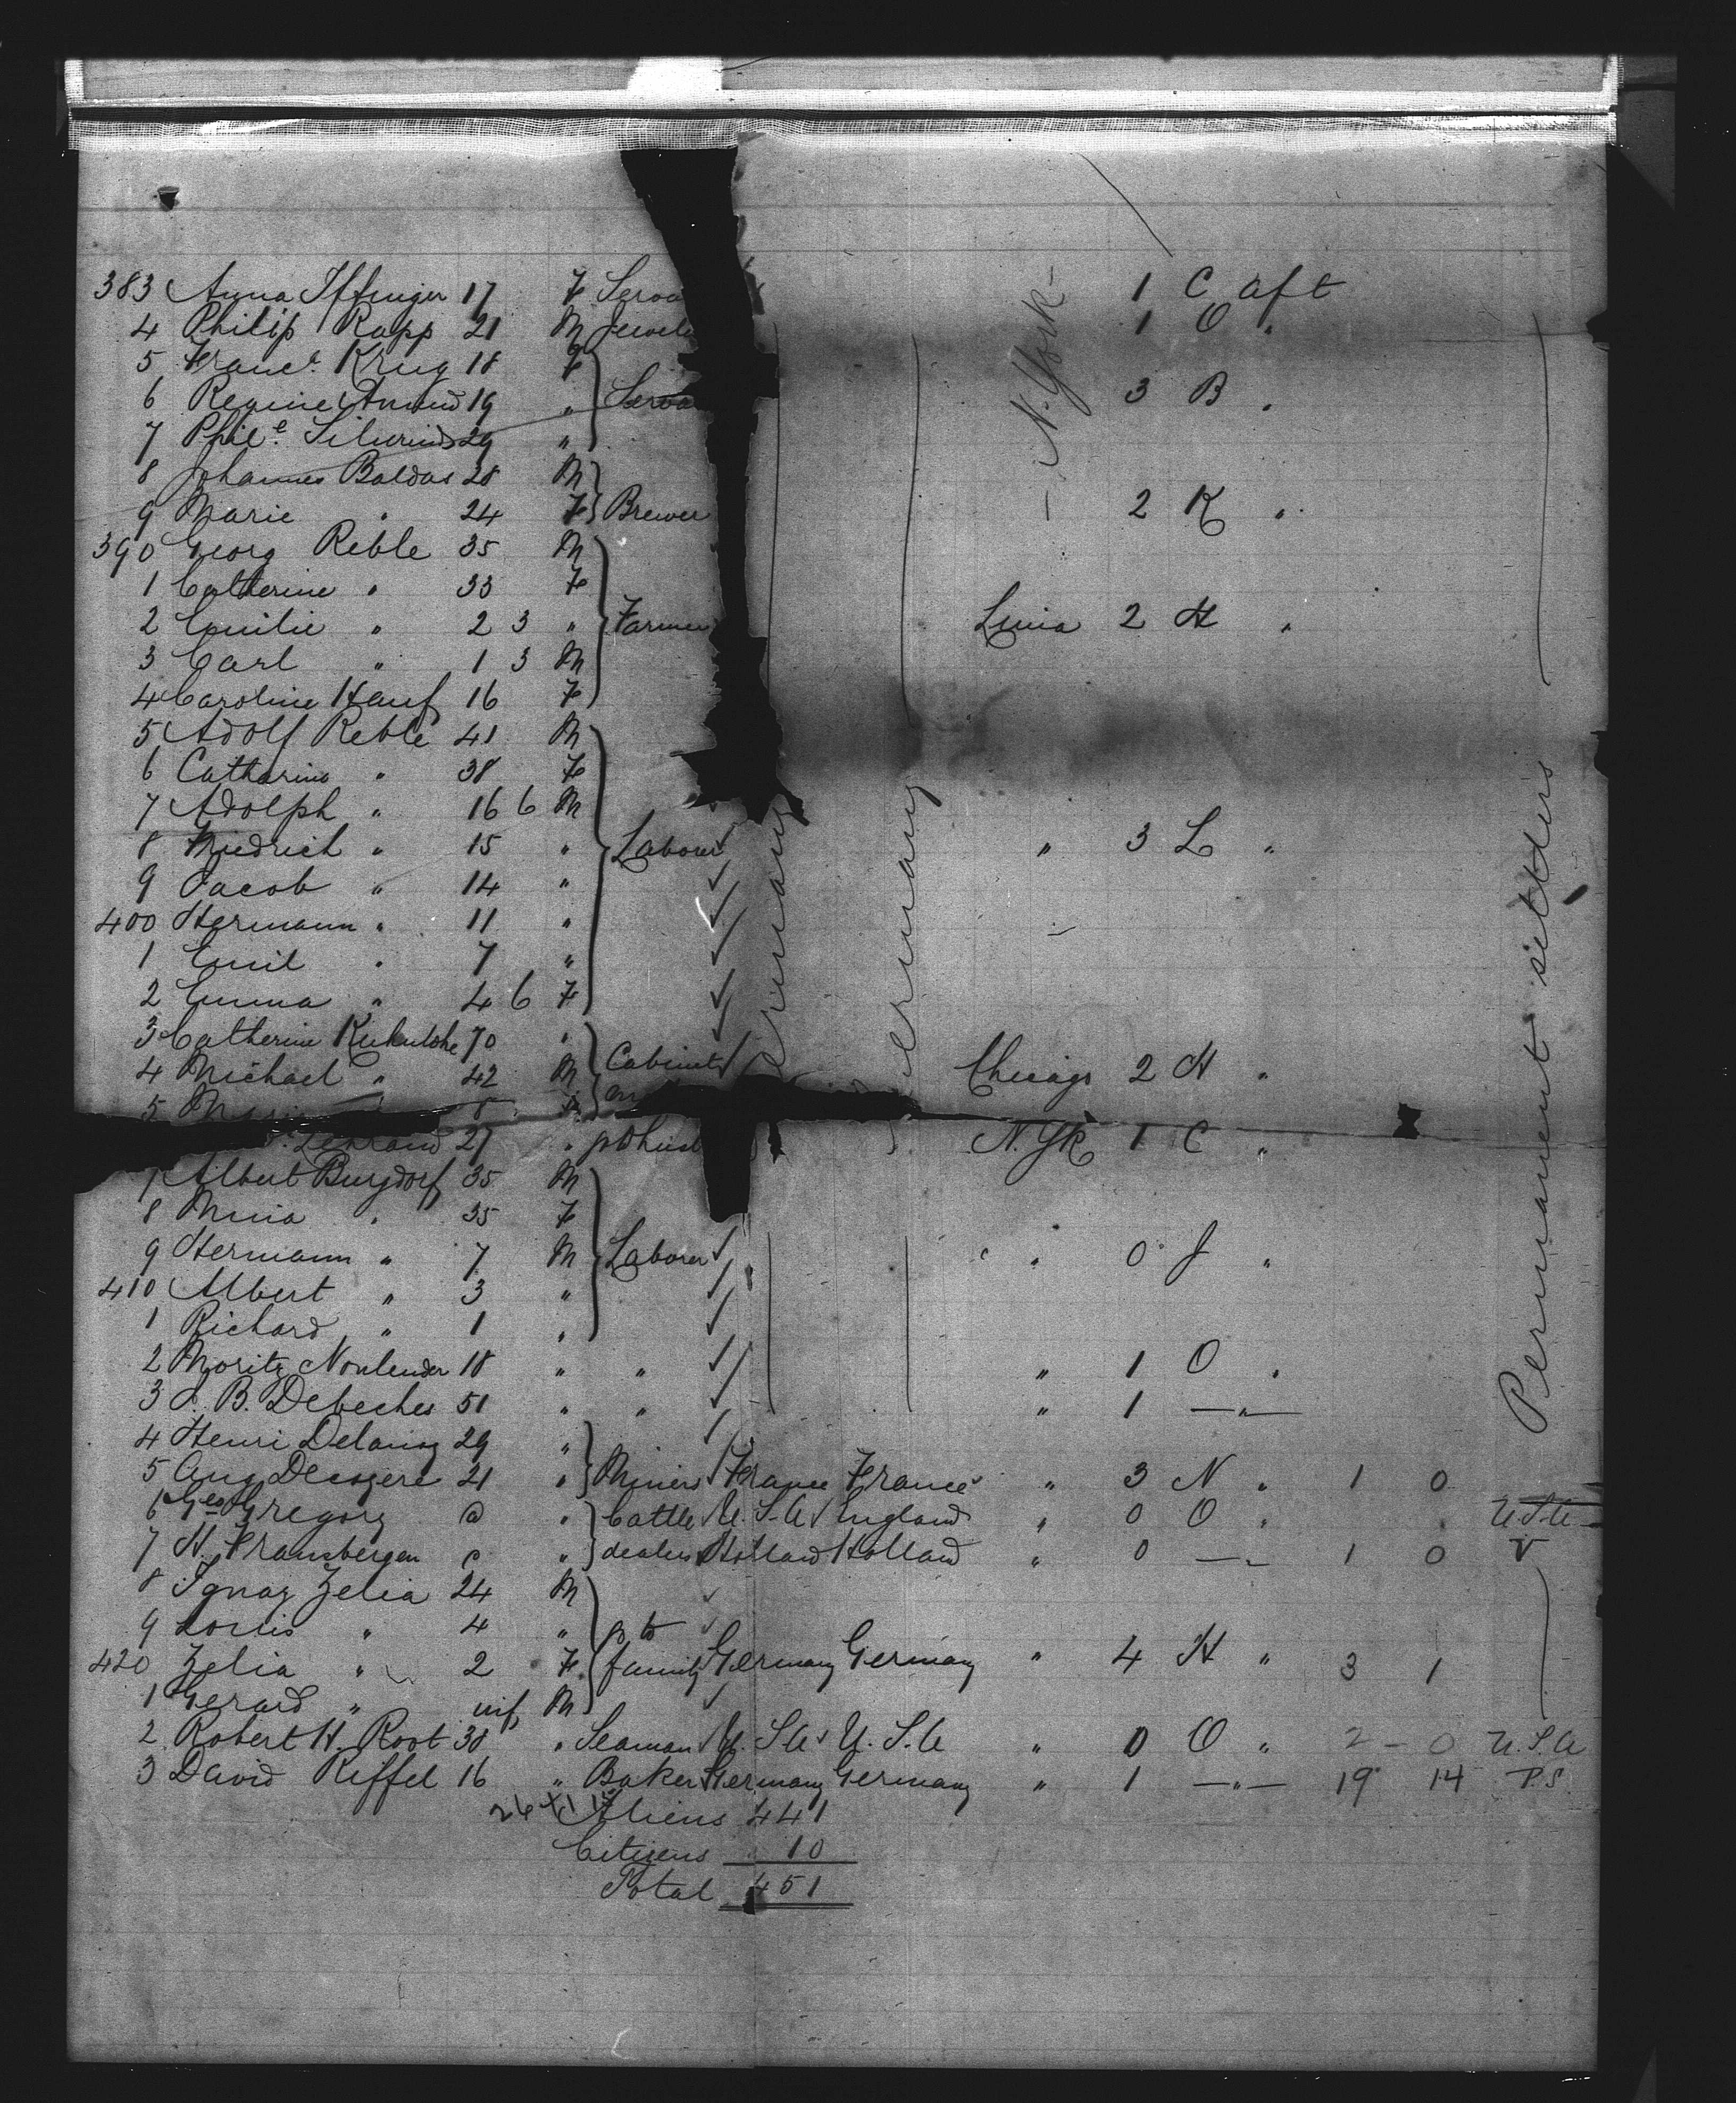 383 Anna Iffinger 17 F Serva 1 C aft
4 Philip Rapp 21 M Jewele 1 O "
5 Franc. Krug 18 F
6 Regine 19 " Serva 3 B "
7 Phil.e 29 "
8 Johannes Baldas 28 M
9 Marie " 24 F Brewer 2 K "
390 Georg Reble 35 M
1 Catherine " 33 F
2 Emilie " 2 3 " Farmer 2 H "
3 Carl " 1 3 M
4 Caroline Hauf 16 F
5 Adolf Reble 41 M
6 Catharina " 38 F
7 Adolph " 16 6 M
8 Friedrich " 15 " Laborer " 3 L "
9 Jacob " 14 "
400 Hermann " 11 "
1 Emil " 7 "
2 Emma " 4 6 F
3 Catherine 70 "
4 Michael " 42 M Cabinet Chicago 2 H "
5
27 " N. Yk 1 C "
7 Albert Burgdorf 35 M
8 Mina " 35 F
9 Hermann " 7 M Laborer " 0 J "
410 Albert " 3 "
1 Richard " 1 "
2 Moritz 18 " " " 1 O "
3 J. B. Debeches 51 " " " 1 —"—
4 Henri 29 "
5 Aug 21 " Miners France France " 3 N " 1 0
6 Geo Gregory a " Cattle U. S. A England " 0 O " " U.S.A
7 H. Fransbergen c " dealers Holland Holland " 0 —"— 1 0 V
8 Ignaz Zelia 24 M
9 Louis " 4 " p to
420 Zelia " 2 F family Germany Germany " 4 H " 3 1
1 Gerard " inf M
2 Robert H. Root 38 " Seaman U. S. A U. S. A " 0 O " 2 – 0 U.S.A
3 David Riffel 16 " Baker Germany Germany " 1 —"— 19 14 P.S
Aliens 441
Citizens 10
Total 451
— N. York —
ermany
ermany
Permanent settlers